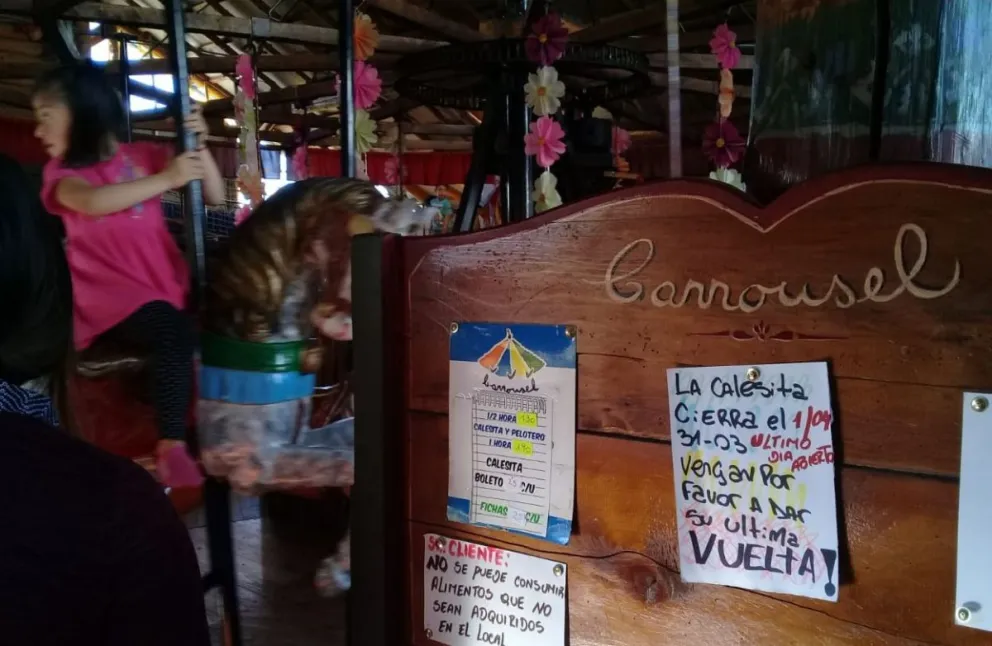 Carrousel
Carrousel
1/2 HORA 130
CALESITA Y PELOTERO
1 HORA 190
CALESITA
BOLETO C/U
FICHAS C/U
SR. CLIENTE:
NO SE PUEDE CONSUMIR
ALIMENTOS QUE NO
SEAN ADQUIRIDOS
EN EL LOCAL
LA CALESITA
CIERRA el 1/04
31-03 ULTIMO
DIA ABIERTO
VENGAN POR
FAVOR A DAR
SU ULTIMA
VUELTA!